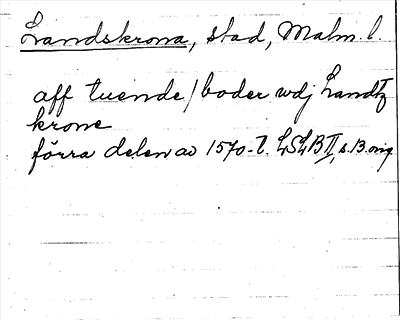 Landskrona, stad, Malm. l.
aff tuende / boder wdj Landtz
krone
förra delen av 1570-t. LSLB II, s. 13. orig